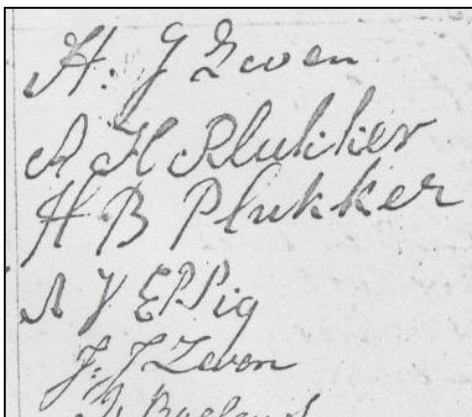 H. J Zeven
A H Plukker
H B Plukker
A V Eppig
J. J Zeven